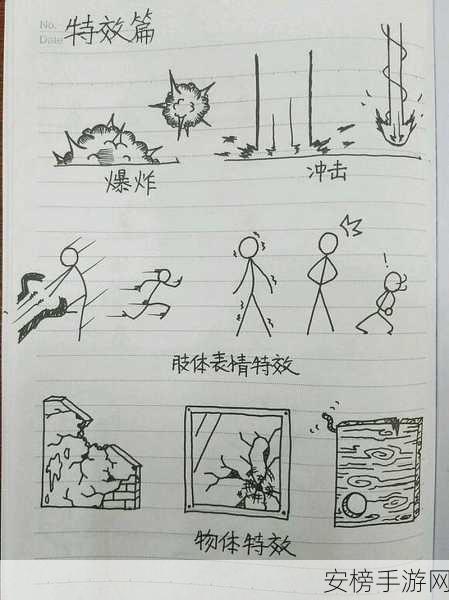 No.
Date
特效篇
爆炸
冲击
!
肢体表情特效
物体特效
安榜手游网